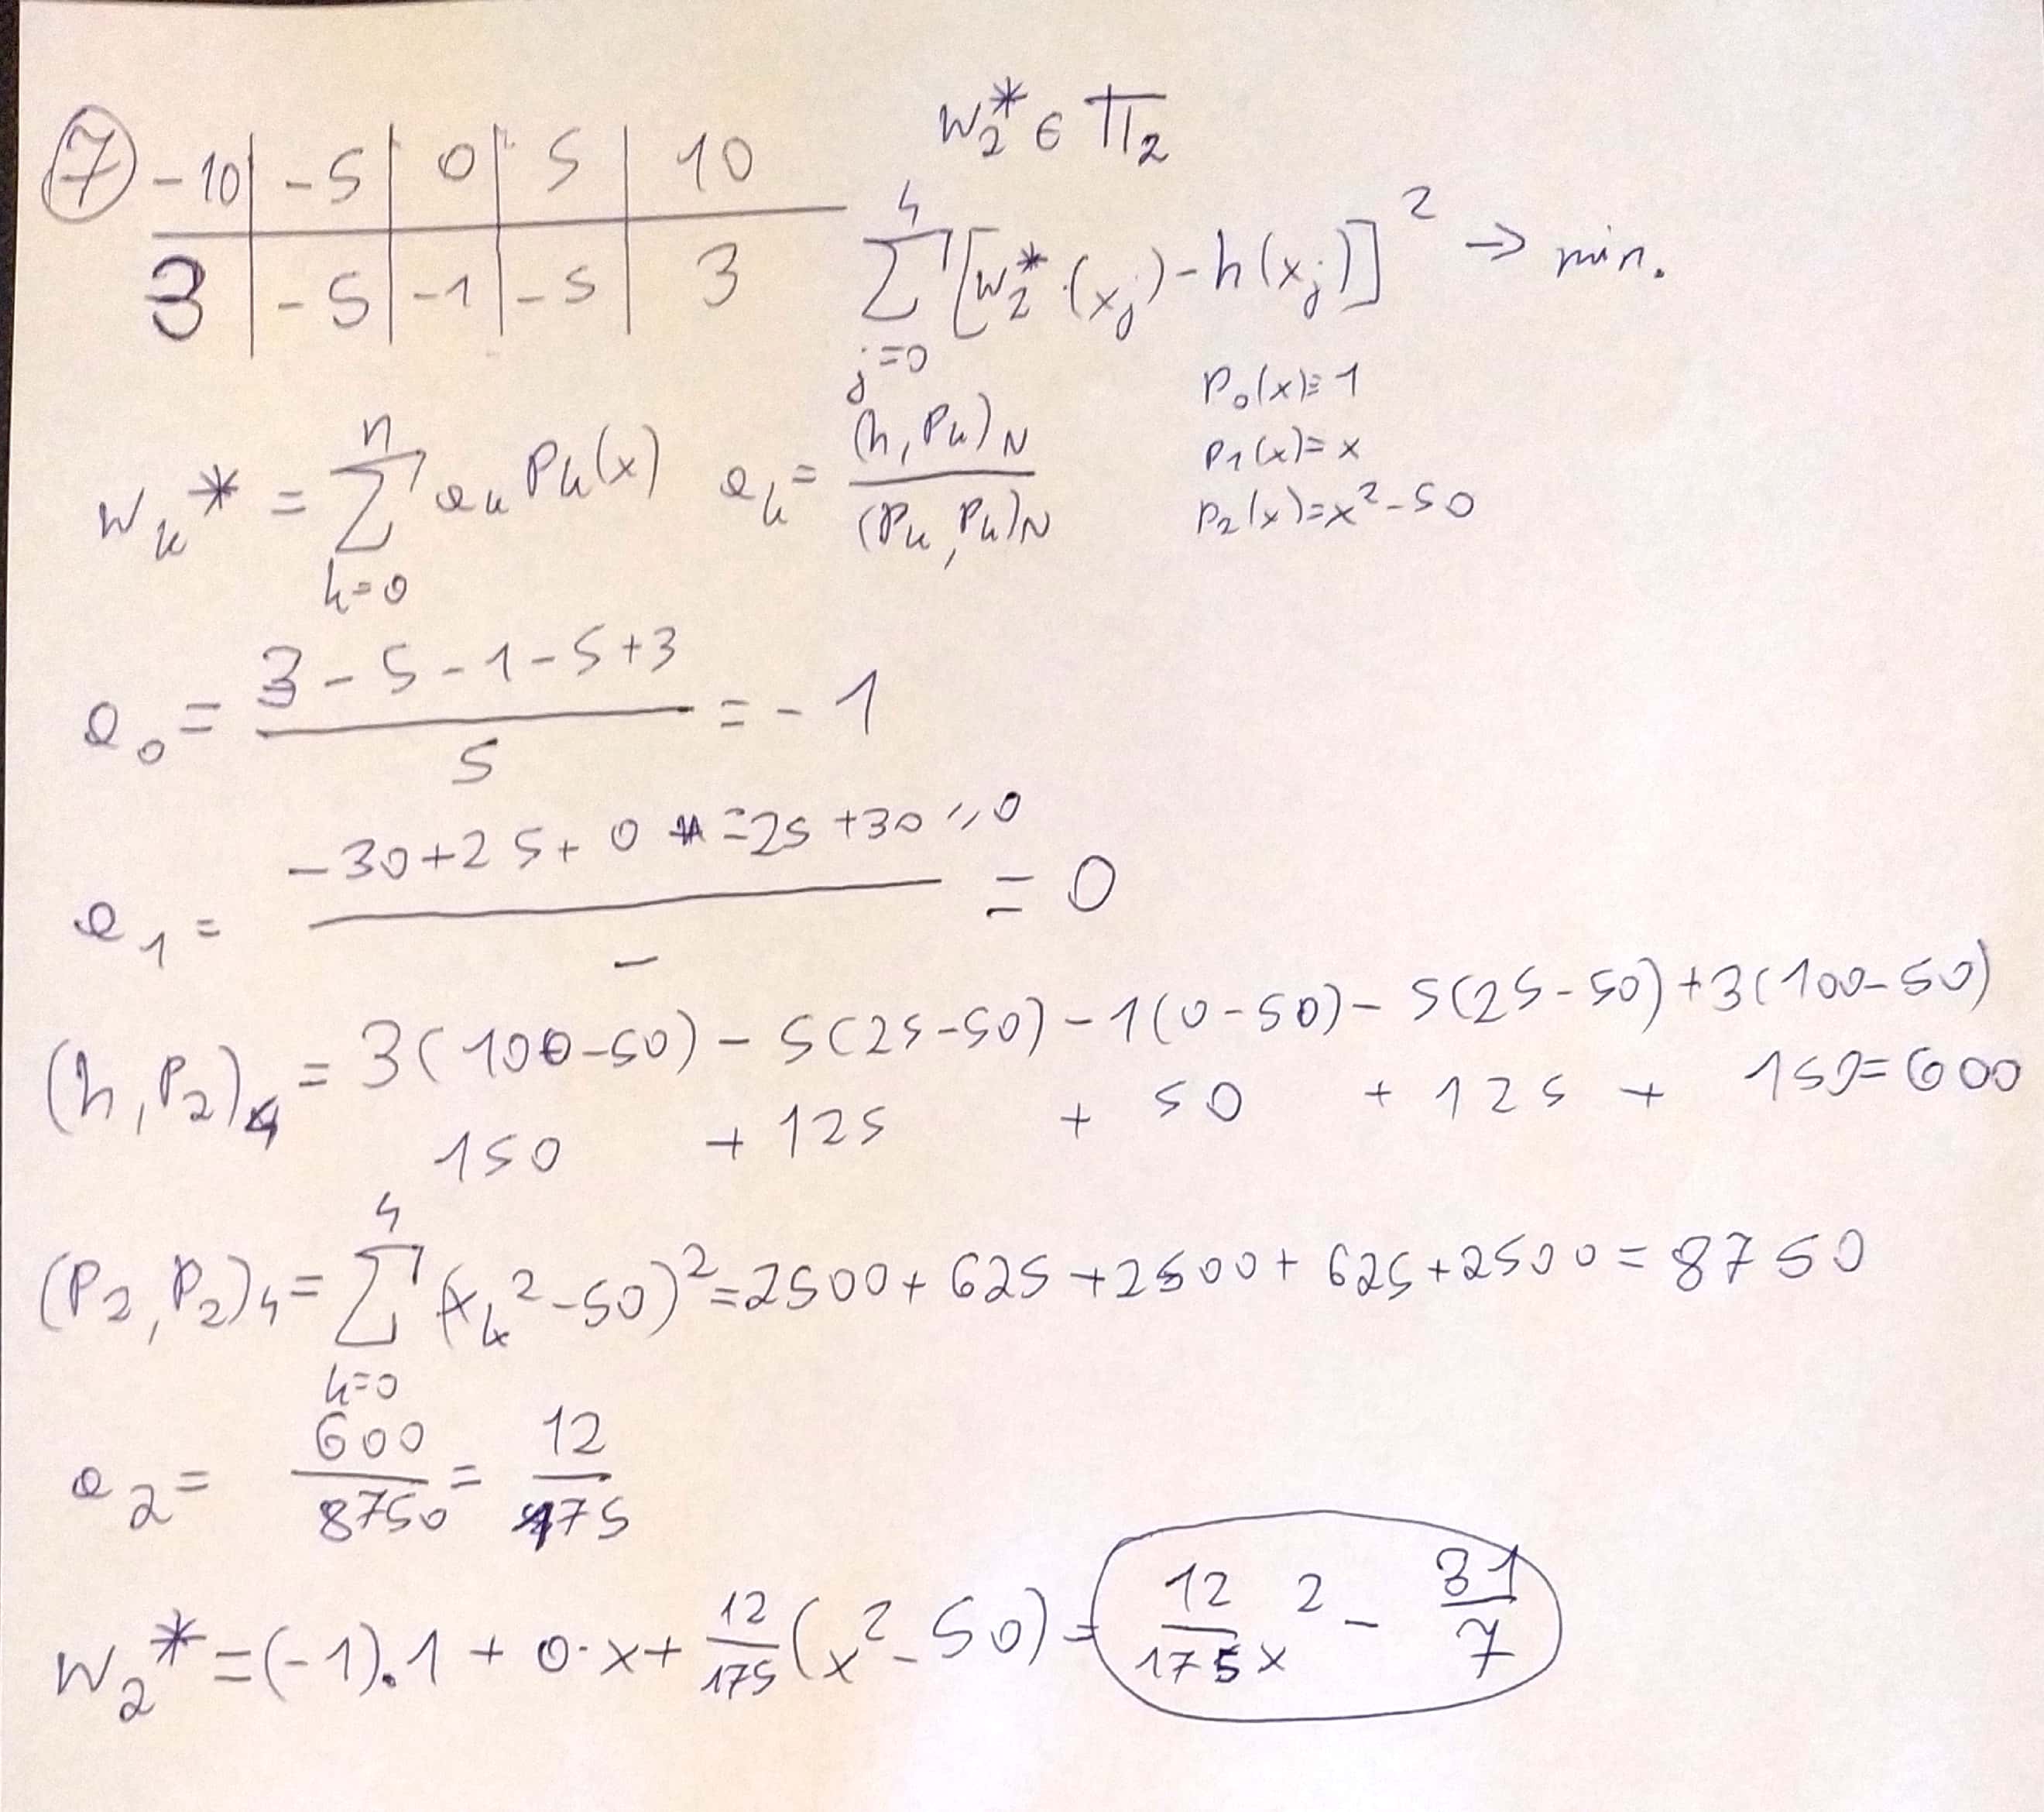 ⑦ -10 | -5 | 0 | 5 | 10
3 | -5 | -1 | -5 | 3
w₂* ∈ Π₂
∑_{j=0}^{4} [w₂*(xⱼ) - h(xⱼ)]² → min.
wₖ* = ∑_{k=0}^{n} aₖ Pₖ(x) aₖ = (h, Pₖ)_N / (Pₖ, Pₖ)_N
P₀(x) ≡ 1
P₁(x) = x
P₂(x) = x² - 50
a₀ = (3 - 5 - 1 - 5 + 3) / 5 = -1
a₁ = (-30 + 25 + 0 - 25 + 30 = 0) / - = 0
(h, P₂)₄ = 3(100-50) - 5(25-50) - 1(0-50) - 5(25-50) + 3(100-50)
150 + 125 + 50 + 125 + 150 = 600
(P₂, P₂)₄ = ∑_{k=0}^{4} (xₖ² - 50)² = 2500 + 625 + 2500 + 625 + 2500 = 8750
a₂ = 600/8750 = 12/175
w₂* = (-1)·1 + 0·x + 12/175 (x² - 50) = 12/175 x² - 31/7